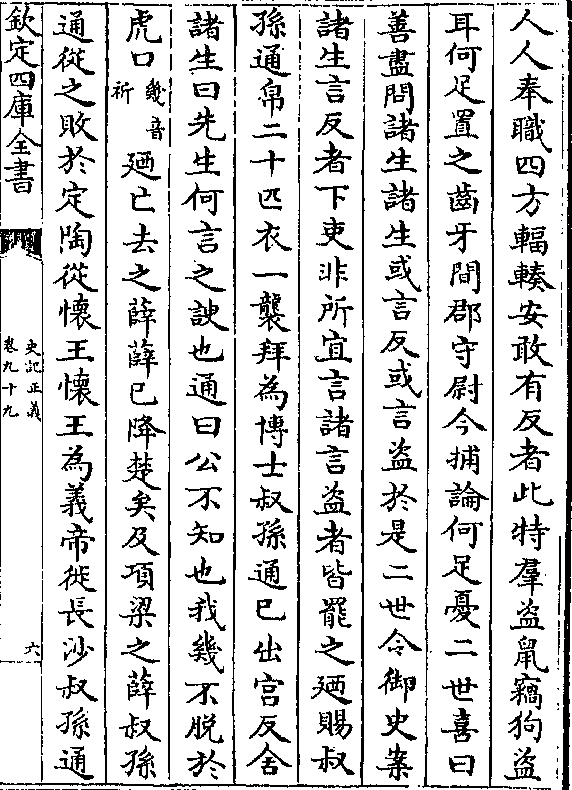 人人奉職四方輻輳安敢有反者此特羣盗鼠竊狗盗
耳何足置之齒牙間郡守尉今捕論何足憂二世喜曰
善盡問諸生諸生或言反或言盗於是二世令御史案
諸生言反者下吏非所宜言諸言盗者皆罷之廼賜叔
孫通帛二十匹衣一襲拜為博士叔孫通已出宫反舍
諸生曰先生何言之諛也通曰公不知也我幾不脱於
虎口幾音祈廼亡去之薛薛已降楚矣及項梁之薛叔孫
通從之敗於定陶從懷王懷王為義帝徙長沙叔孫通
欽定四庫全書
史記正義
卷九十九
六